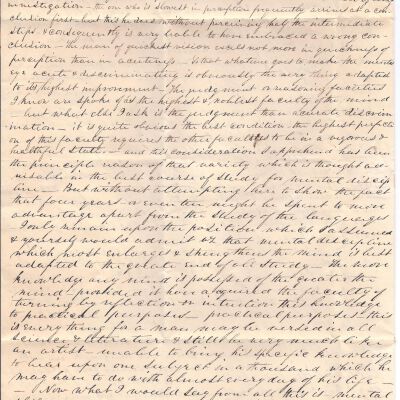 investigation – the one who is slowest in perception frequently arrives at a con-
clusion first but this he does without perceiving half the intermediate
steps & consequently is very liable to have embraced a wrong con-
clusion – the man of quickest vision excels not more in quickness of
perception than in acuteness – so that whatever goes to make the mental
eye acute & discriminating is obviously the very thing adapted
to its highest improvement – The judgment or reasoning faculties
I know are spoken of as the highest & noblest faculty of the mind
– but what else I ask is the judgment than accurate discrim-
ination – it is quite obvious the best condition the highest perfecti-
on of this faculty requires the other faculties to be in a vigorous &
healthful state – and this consideration I apprehend has been
the principle reason of that variety which is thought ad-
visable in the best course of study for mental discip
line – But without attempting here to show the fact
that four years or even ten might be spent to more
advantage apart from the study of the languages
I only remain upon the position which I assumed
& yourself would admit viz that mental discipline
which most enlarges & strengthens the mind is best
adapted to the great end of all study – The more
knowledge any mind is possessed of the greater the
mind provided it have acquired the faculty of
turning by reflection or intuition this knowledge
to practical purposes – practical purposes – this
is everything for a man may be versed in all
science & literature & still be very much like
an artist unable to bring his specific knowledge
to bear upon one subject in a thousand which he
may have to do with almost every day of his life –
Now what I would say from all this is – mental